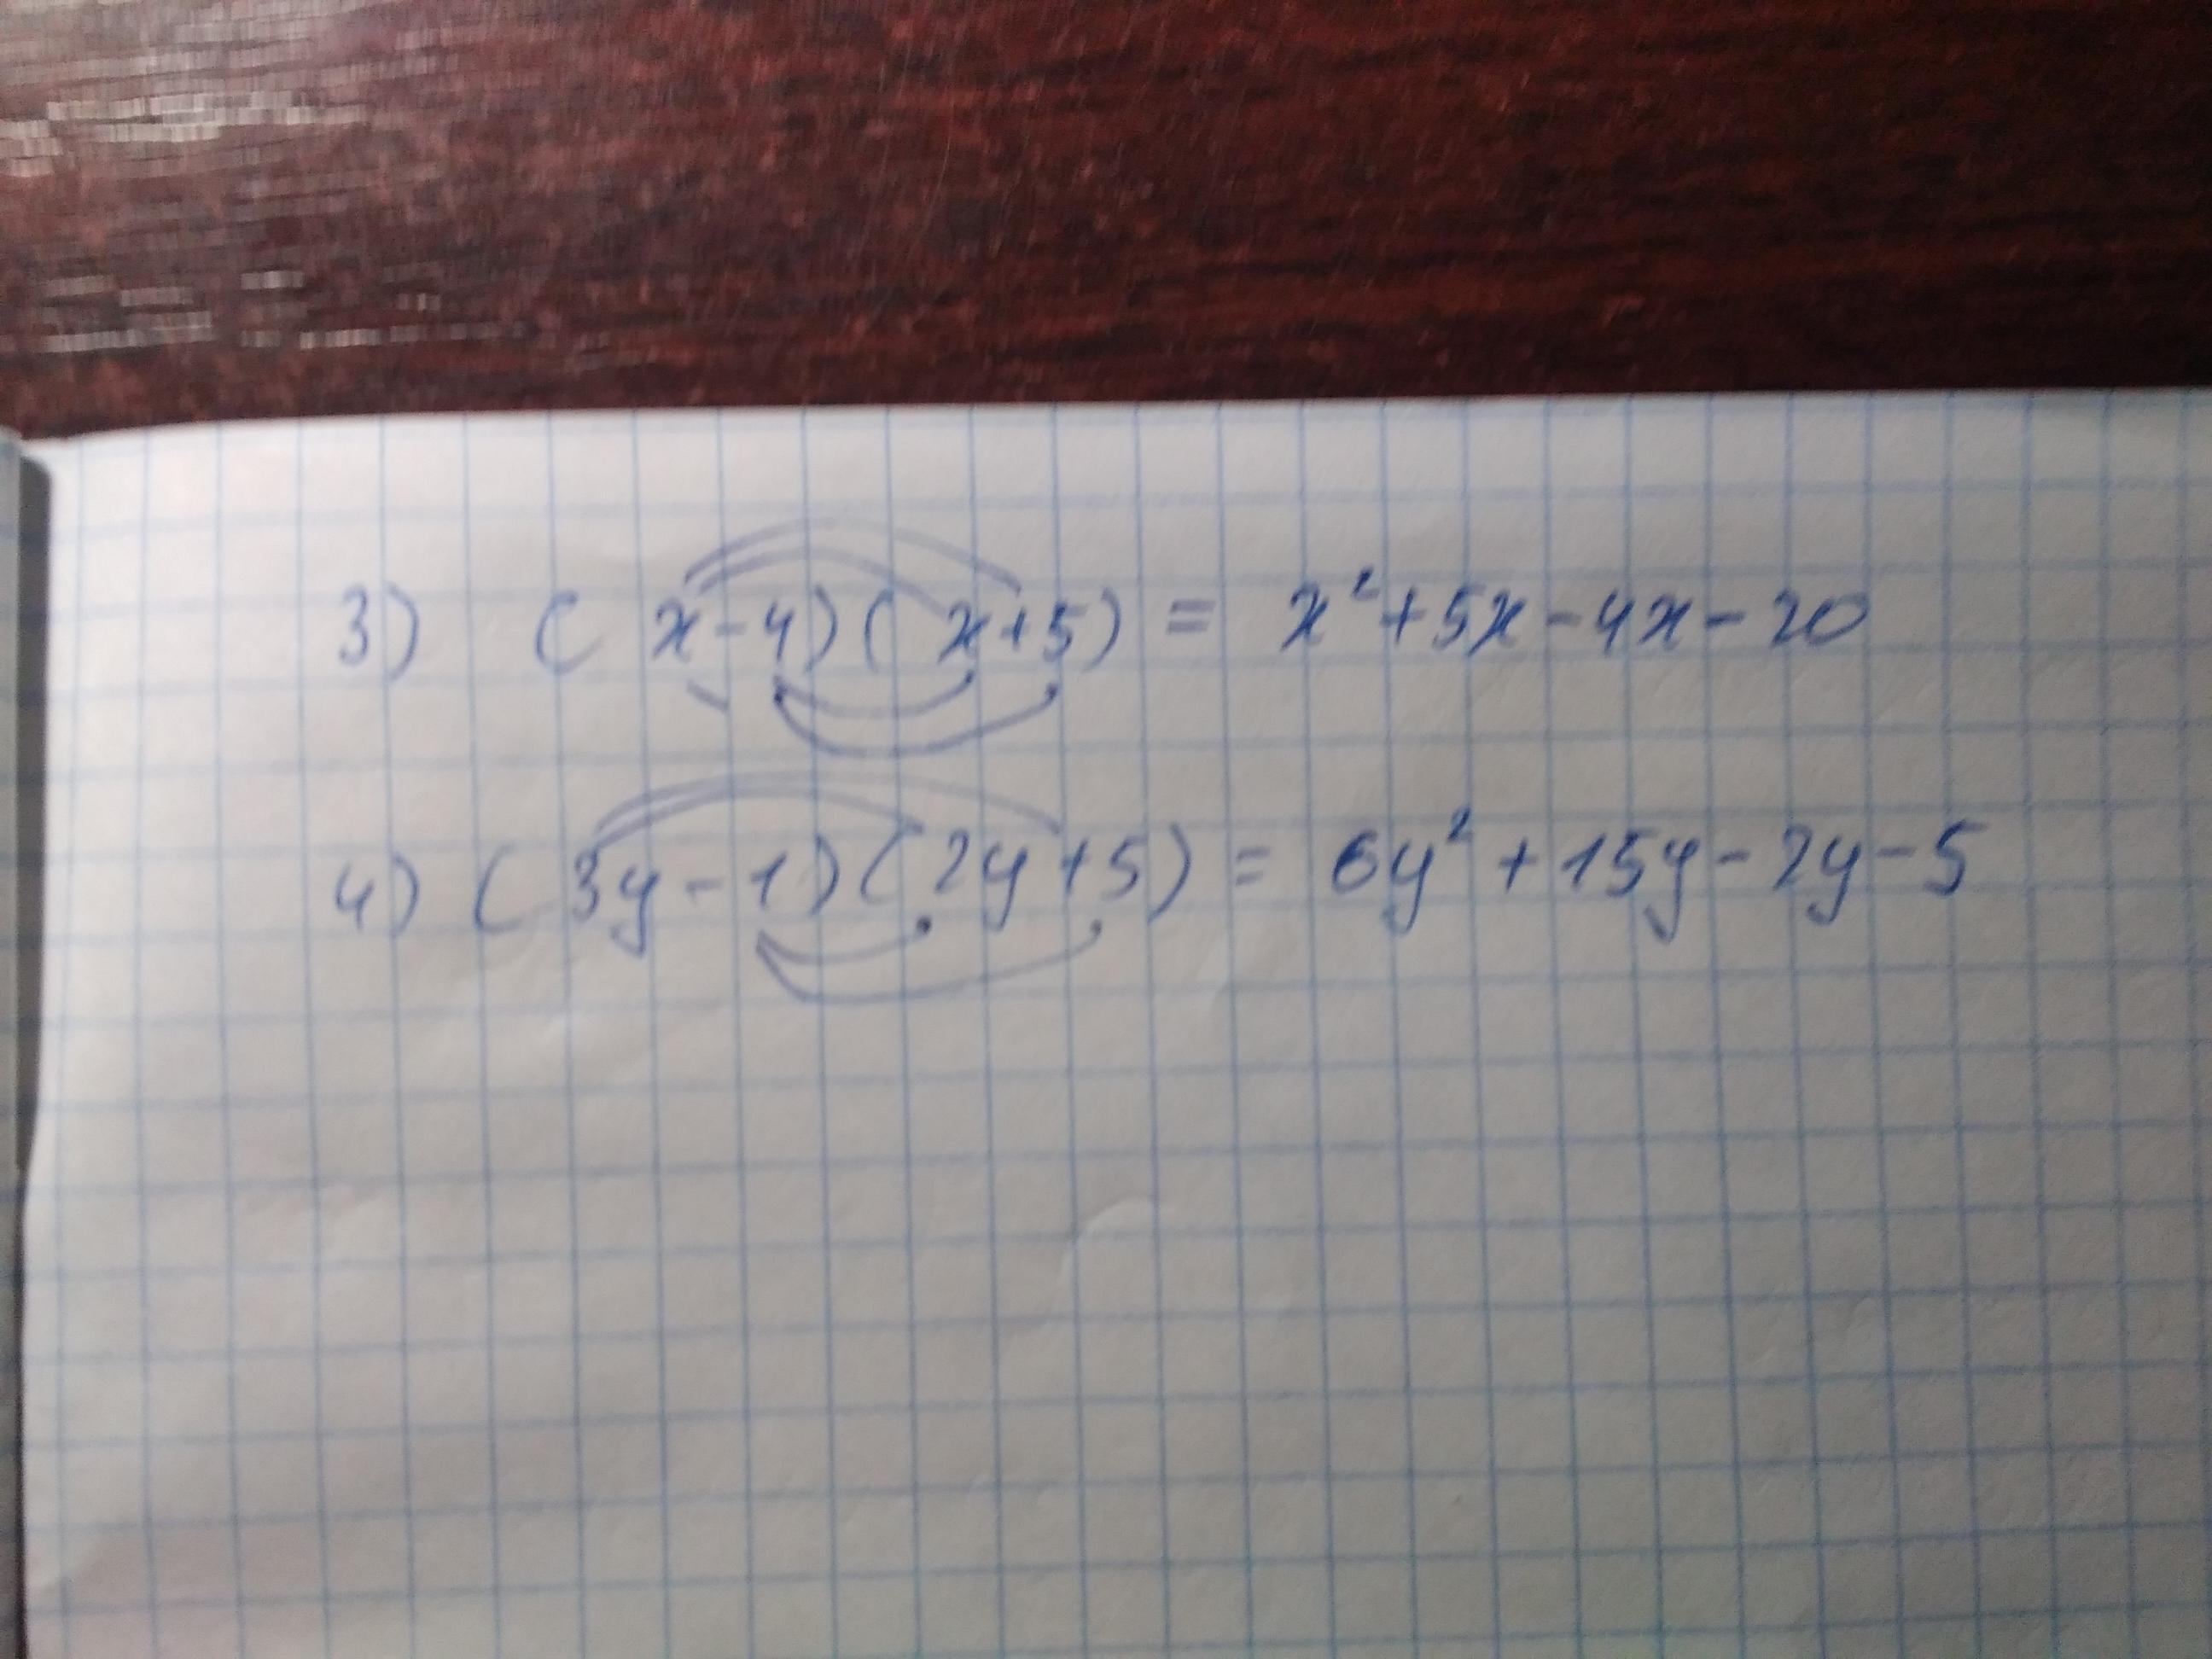 3) (x-4)(x+5) = x²+5x-4x-20
4) (3y-1)(2y+5) = 6y²+15y-2y-5